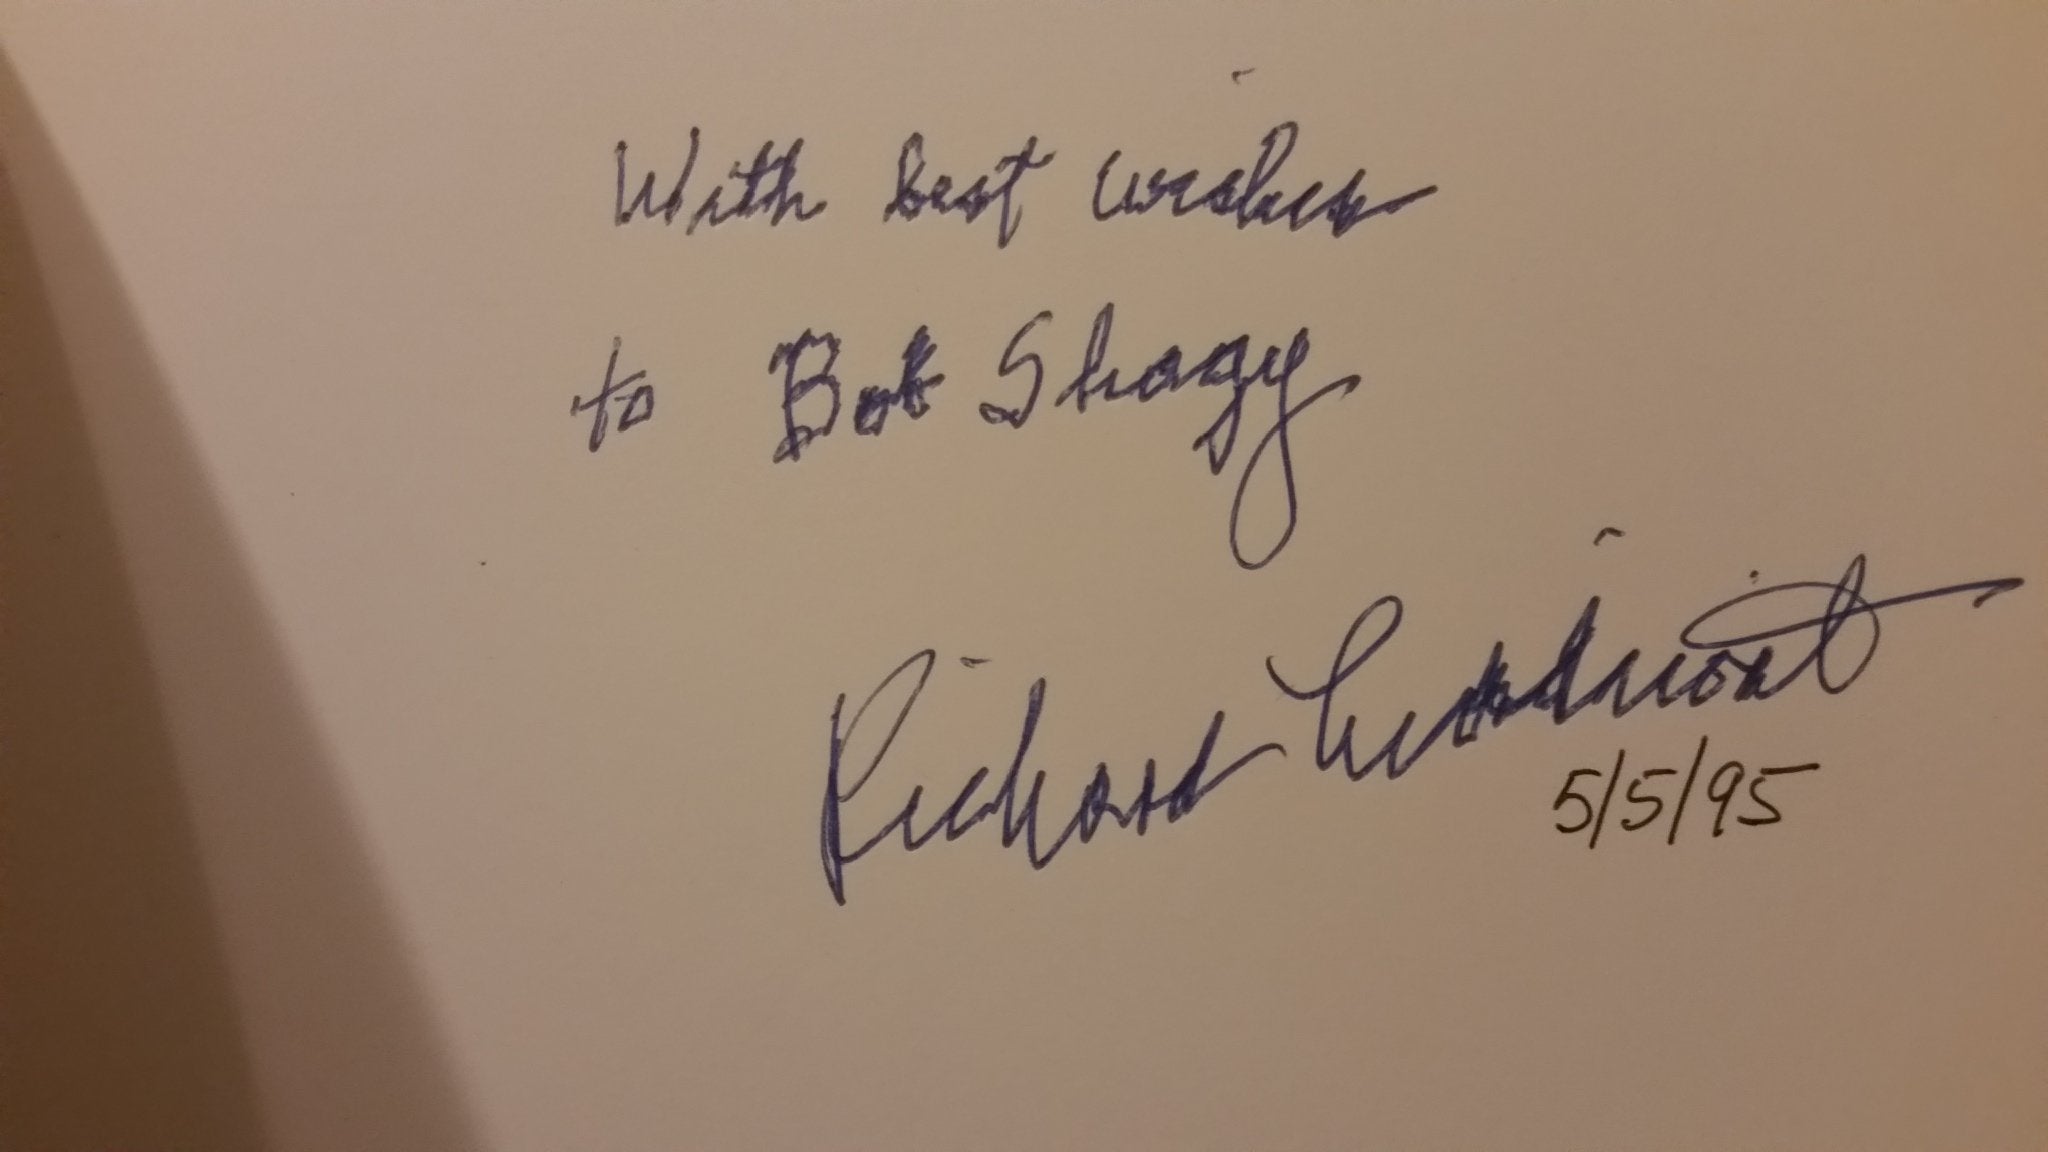 With best wishes
to Bob Shagy
Richard
5/5/95